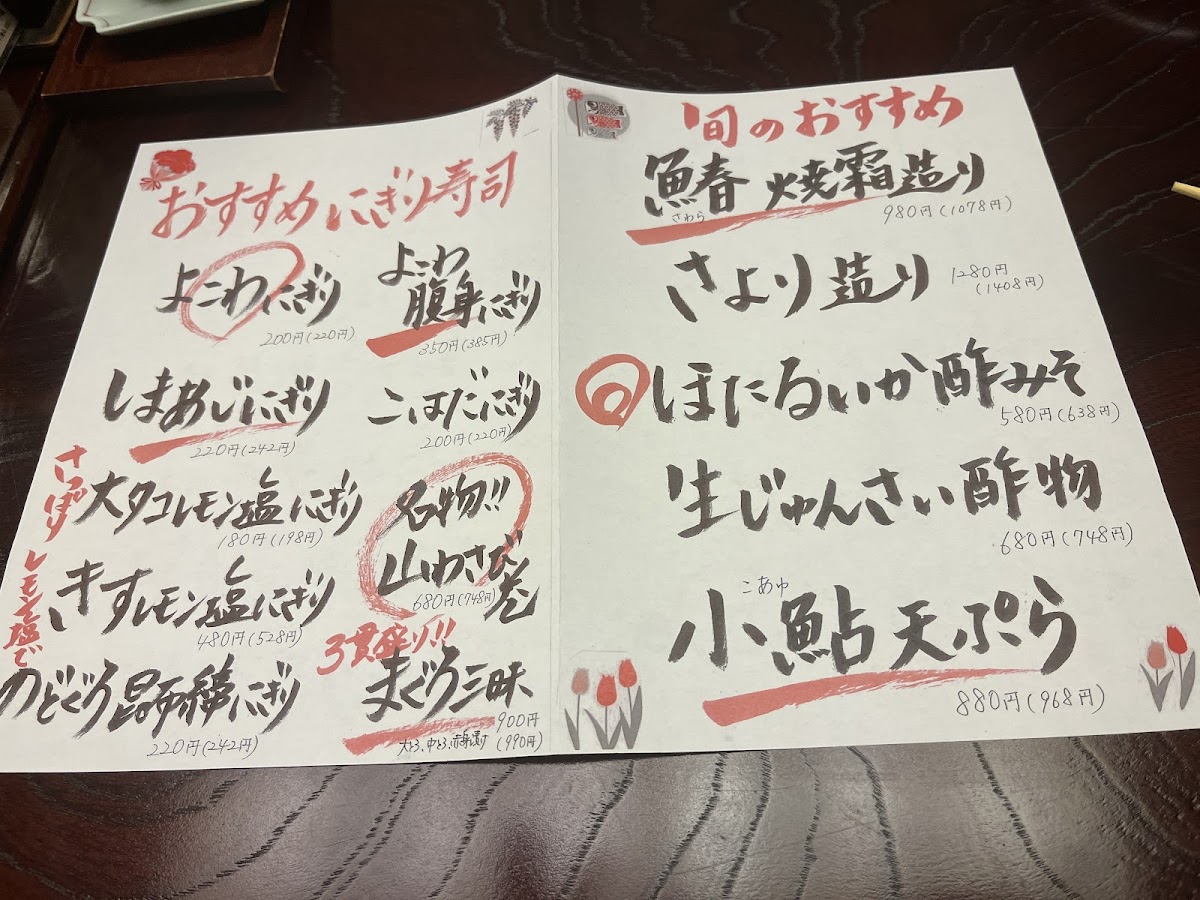 おすすめにぎり寿司
よこわにぎり
200円(220円)
よこわ
腹身にぎり
350円(385円)
しまあじにぎり
220円(242円)
こはだにぎり
200円(220円)
さっぱり
レモン塩で
大タコレモン塩にぎり
180円(198円)
きすレモン塩にぎり
480円(528円)
のどぐろ昆布〆にぎり
220円(242円)
名物!!
山わさび
巻
680円(748円)
3貫盛り!!
まぐろ三昧
900円
(990円)
大とろ、中とろ、赤身漬け
旬のおすすめ
鰆 焼霜造り
さわら
980円(1078円)
さより造り
1280円
(1408円)
ほたるいか酢みそ
580円(638円)
生じゅんさい酢物
680円(748円)
こあゆ
小鮎天ぷら
880円(968円)